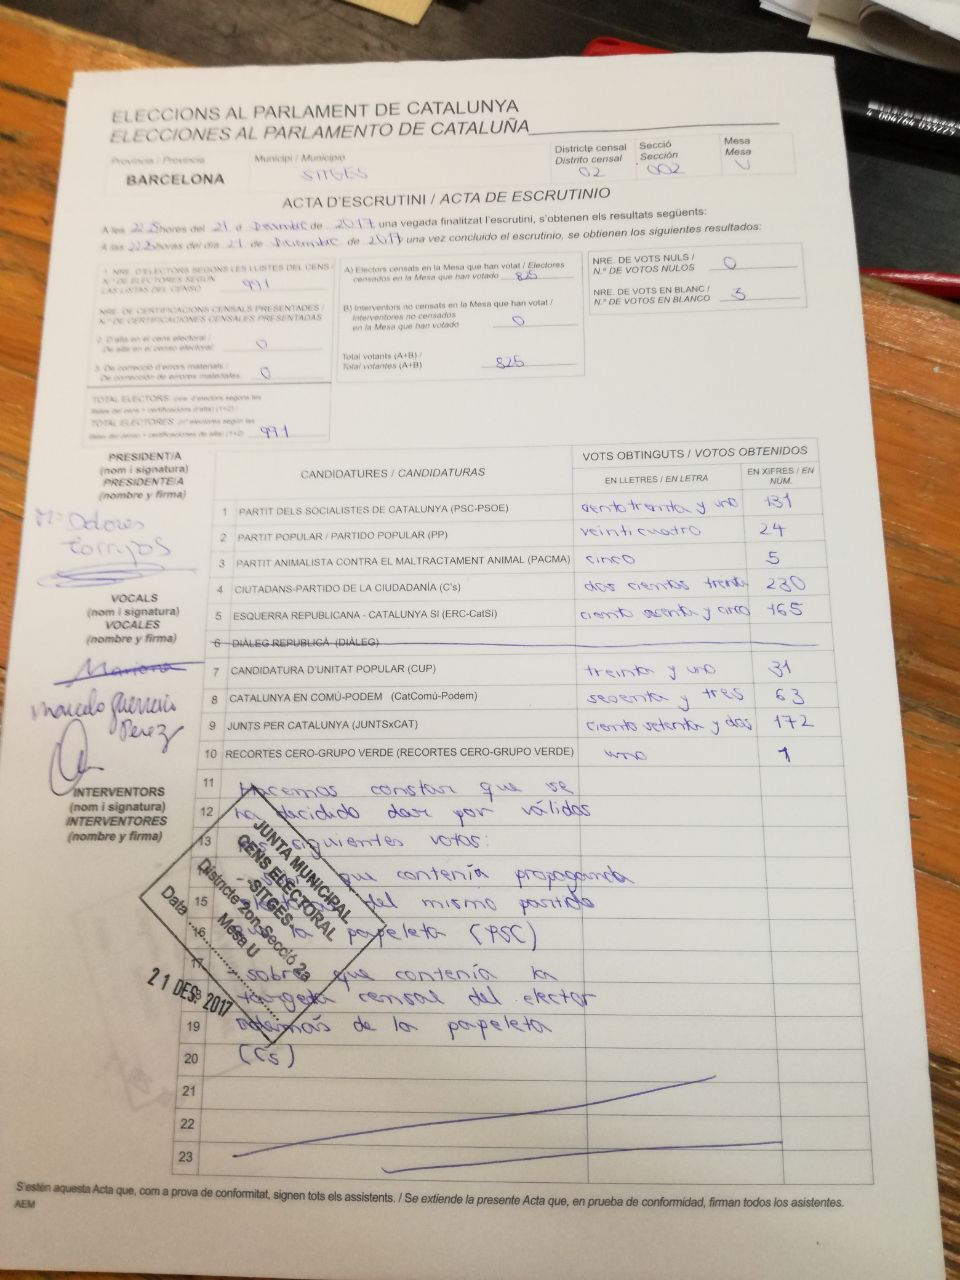 ELECCIONS AL PARLAMENT DE CATALUNYA
ELECCIONES AL PARLAMENTO DE CATALUÑA
Província / Provincia
BARCELONA
Municipi / Municipio
SITGES
Districte censal
Distrito censal
02
Secció
Sección
002
Mesa
Mesa
U
ACTA D'ESCRUTINI / ACTA DE ESCRUTINIO
A les hores del 21 d de 2017 una vegada finalitzat l'escrutini, s'obtenen els resultats següents:
A las horas del día 21 de Diciembre de 2017 una vez concluido el escrutinio, se obtienen los siguientes resultados:
1. NRE. D'ELECTORS SEGONS LES LLISTES DEL CENS /
N.º DE ELECTORES SEGÚN
LAS LISTAS DEL CENSO 991
NRE. DE CERTIFICACIONS CENSALS PRESENTADES /
N.º DE CERTIFICACIONES CENSALES PRESENTADAS
2. D'alta en el cens electoral /
De alta en el censo electoral 0
3. De correcció d'errors materials /
De corrección de errores materiales 0
TOTAL ELECTORS (nre. d'electors segons les
llistes del cens + certificacions d'alta) (1+2) /
TOTAL ELECTORES (n.º electores según las
listas del censo + certificaciones de alta) (1+2) 991
A) Electors censats en la Mesa que han votat / Electores
censados en la Mesa que han votado 825
B) Interventors no censats en la Mesa que han votat /
Interventores no censados
en la Mesa que han votado 0
Total votants (A+B) /
Total votantes (A+B) 825
NRE. DE VOTS NULS /
N.º DE VOTOS NULOS 0
NRE. DE VOTS EN BLANC /
N.º DE VOTOS EN BLANCO 3
PRESIDENT/A
(nom i signatura)
PRESIDENTE/A
(nombre y firma)
Mª Dolores
Torrijos
VOCALS
(nom i signatura)
VOCALES
(nombre y firma)
Mariona
Marcelo Guerrero
Perez
INTERVENTORS
(nom i signatura)
INTERVENTORES
(nombre y firma)
CANDIDATURES / CANDIDATURAS
VOTS OBTINGUTS / VOTOS OBTENIDOS
EN LLETRES / EN LETRA
EN XIFRES / EN
NÚM.
1 PARTIT DELS SOCIALISTES DE CATALUNYA (PSC-PSOE) ciento treinta y uno 131
2 PARTIT POPULAR / PARTIDO POPULAR (PP) veinticuatro 24
3 PARTIT ANIMALISTA CONTRA EL MALTRACTAMENT ANIMAL (PACMA) cinco 5
4 CIUTADANS-PARTIDO DE LA CIUDADANÍA (C's) dos cientos treinta 230
5 ESQUERRA REPUBLICANA - CATALUNYA SI (ERC-CatSí) ciento sesenta y cinco 165
6 DIÀLEG REPUBLICÀ (DIÀLEG)
7 CANDIDATURA D'UNITAT POPULAR (CUP) treinta y uno 31
8 CATALUNYA EN COMÚ-PODEM (CatComú-Podem) sesenta y tres 63
9 JUNTS PER CATALUNYA (JUNTSxCAT) ciento setenta y dos 172
10 RECORTES CERO-GRUPO VERDE (RECORTES CERO-GRUPO VERDE) uno 1
11 Hacemos constar que se
12 ha decidido dar por válidos
13 los siguientes votos:
- sobre que contenía propaganda
15 del mismo partido
16 que la papeleta (PSC)
17 - sobre que contenía la
targeta censal del elector
19 además de la papeleta
20 (Cs)
21
22
23
JUNTA MUNICIPAL
CENS ELECTORAL
-SITGES-
Districte 2on Secció 2a
Mesa U
Data
21 DES. 2017
S'estén aquesta Acta que, com a prova de conformitat, signen tots els assistents. / Se extiende la presente Acta que, en prueba de conformidad, firman todos los asistentes.
AEM